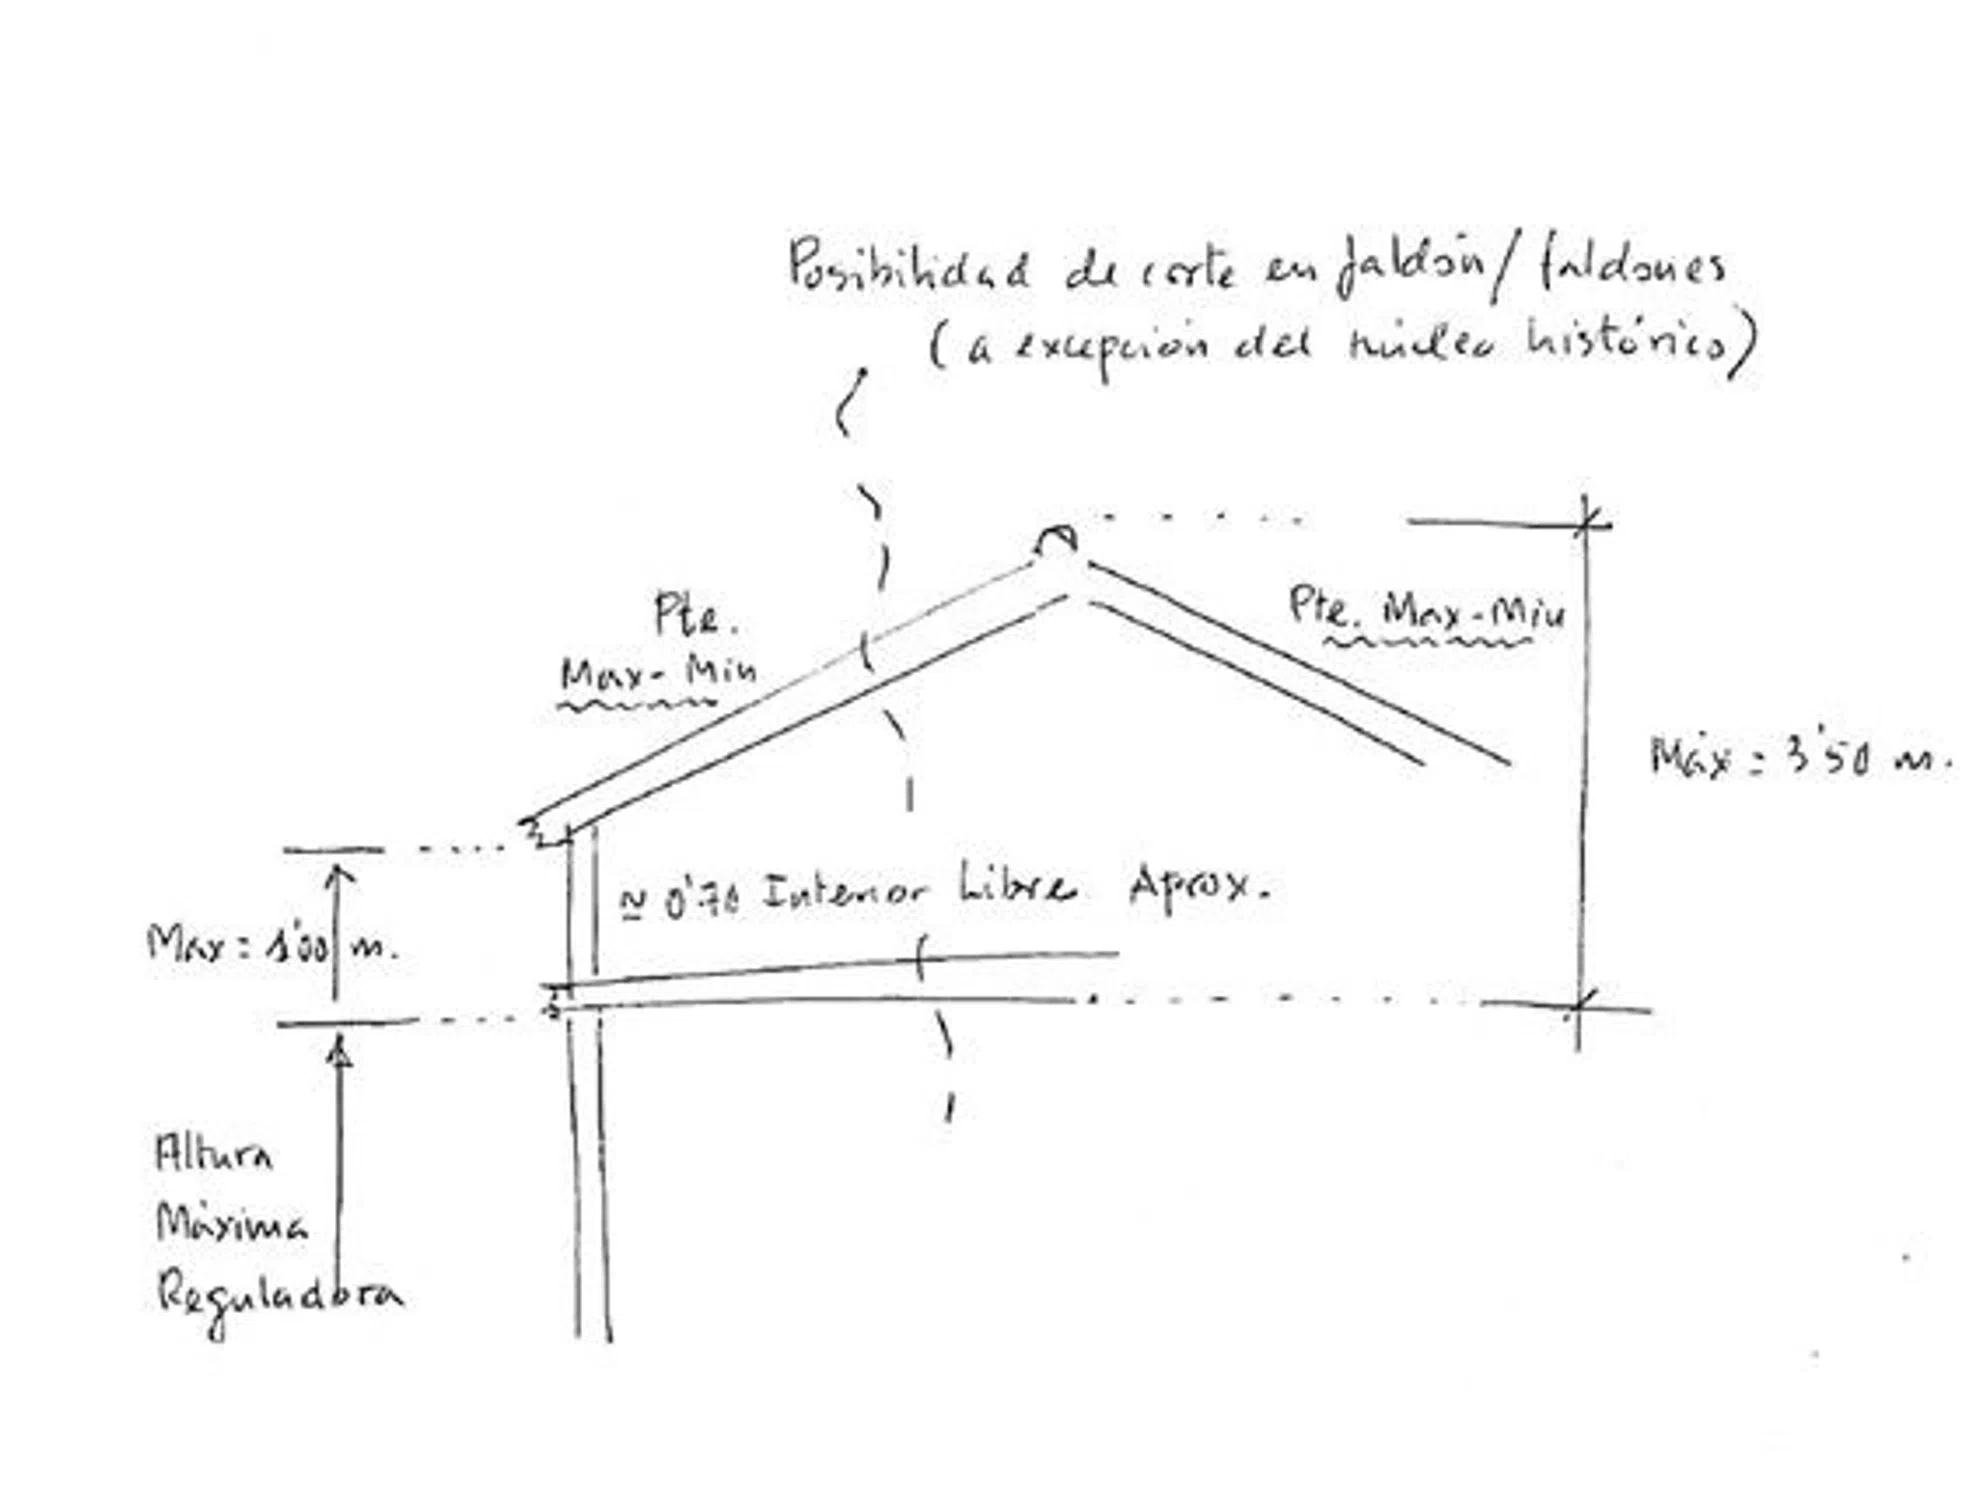 Posibilidad de corte en faldón/faldones
(a excepción del núcleo histórico)
Pte.
Max-Min
Pte. Max-Min
Máx = 3'50 m.
≃ 0'70 Interior Libre Aprox.
Max = 1'00 m.
Altura
Máxima
Reguladora